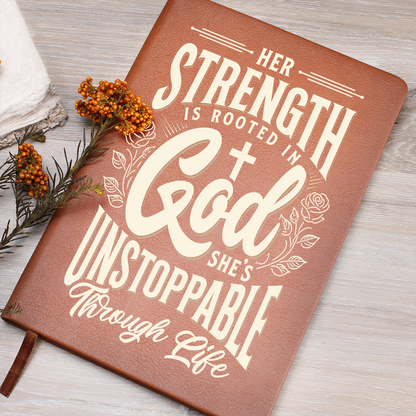 HER
STRENGTH
IS ROOTED IN
God
SHE'S
UNSTOPPABLE
Through Life